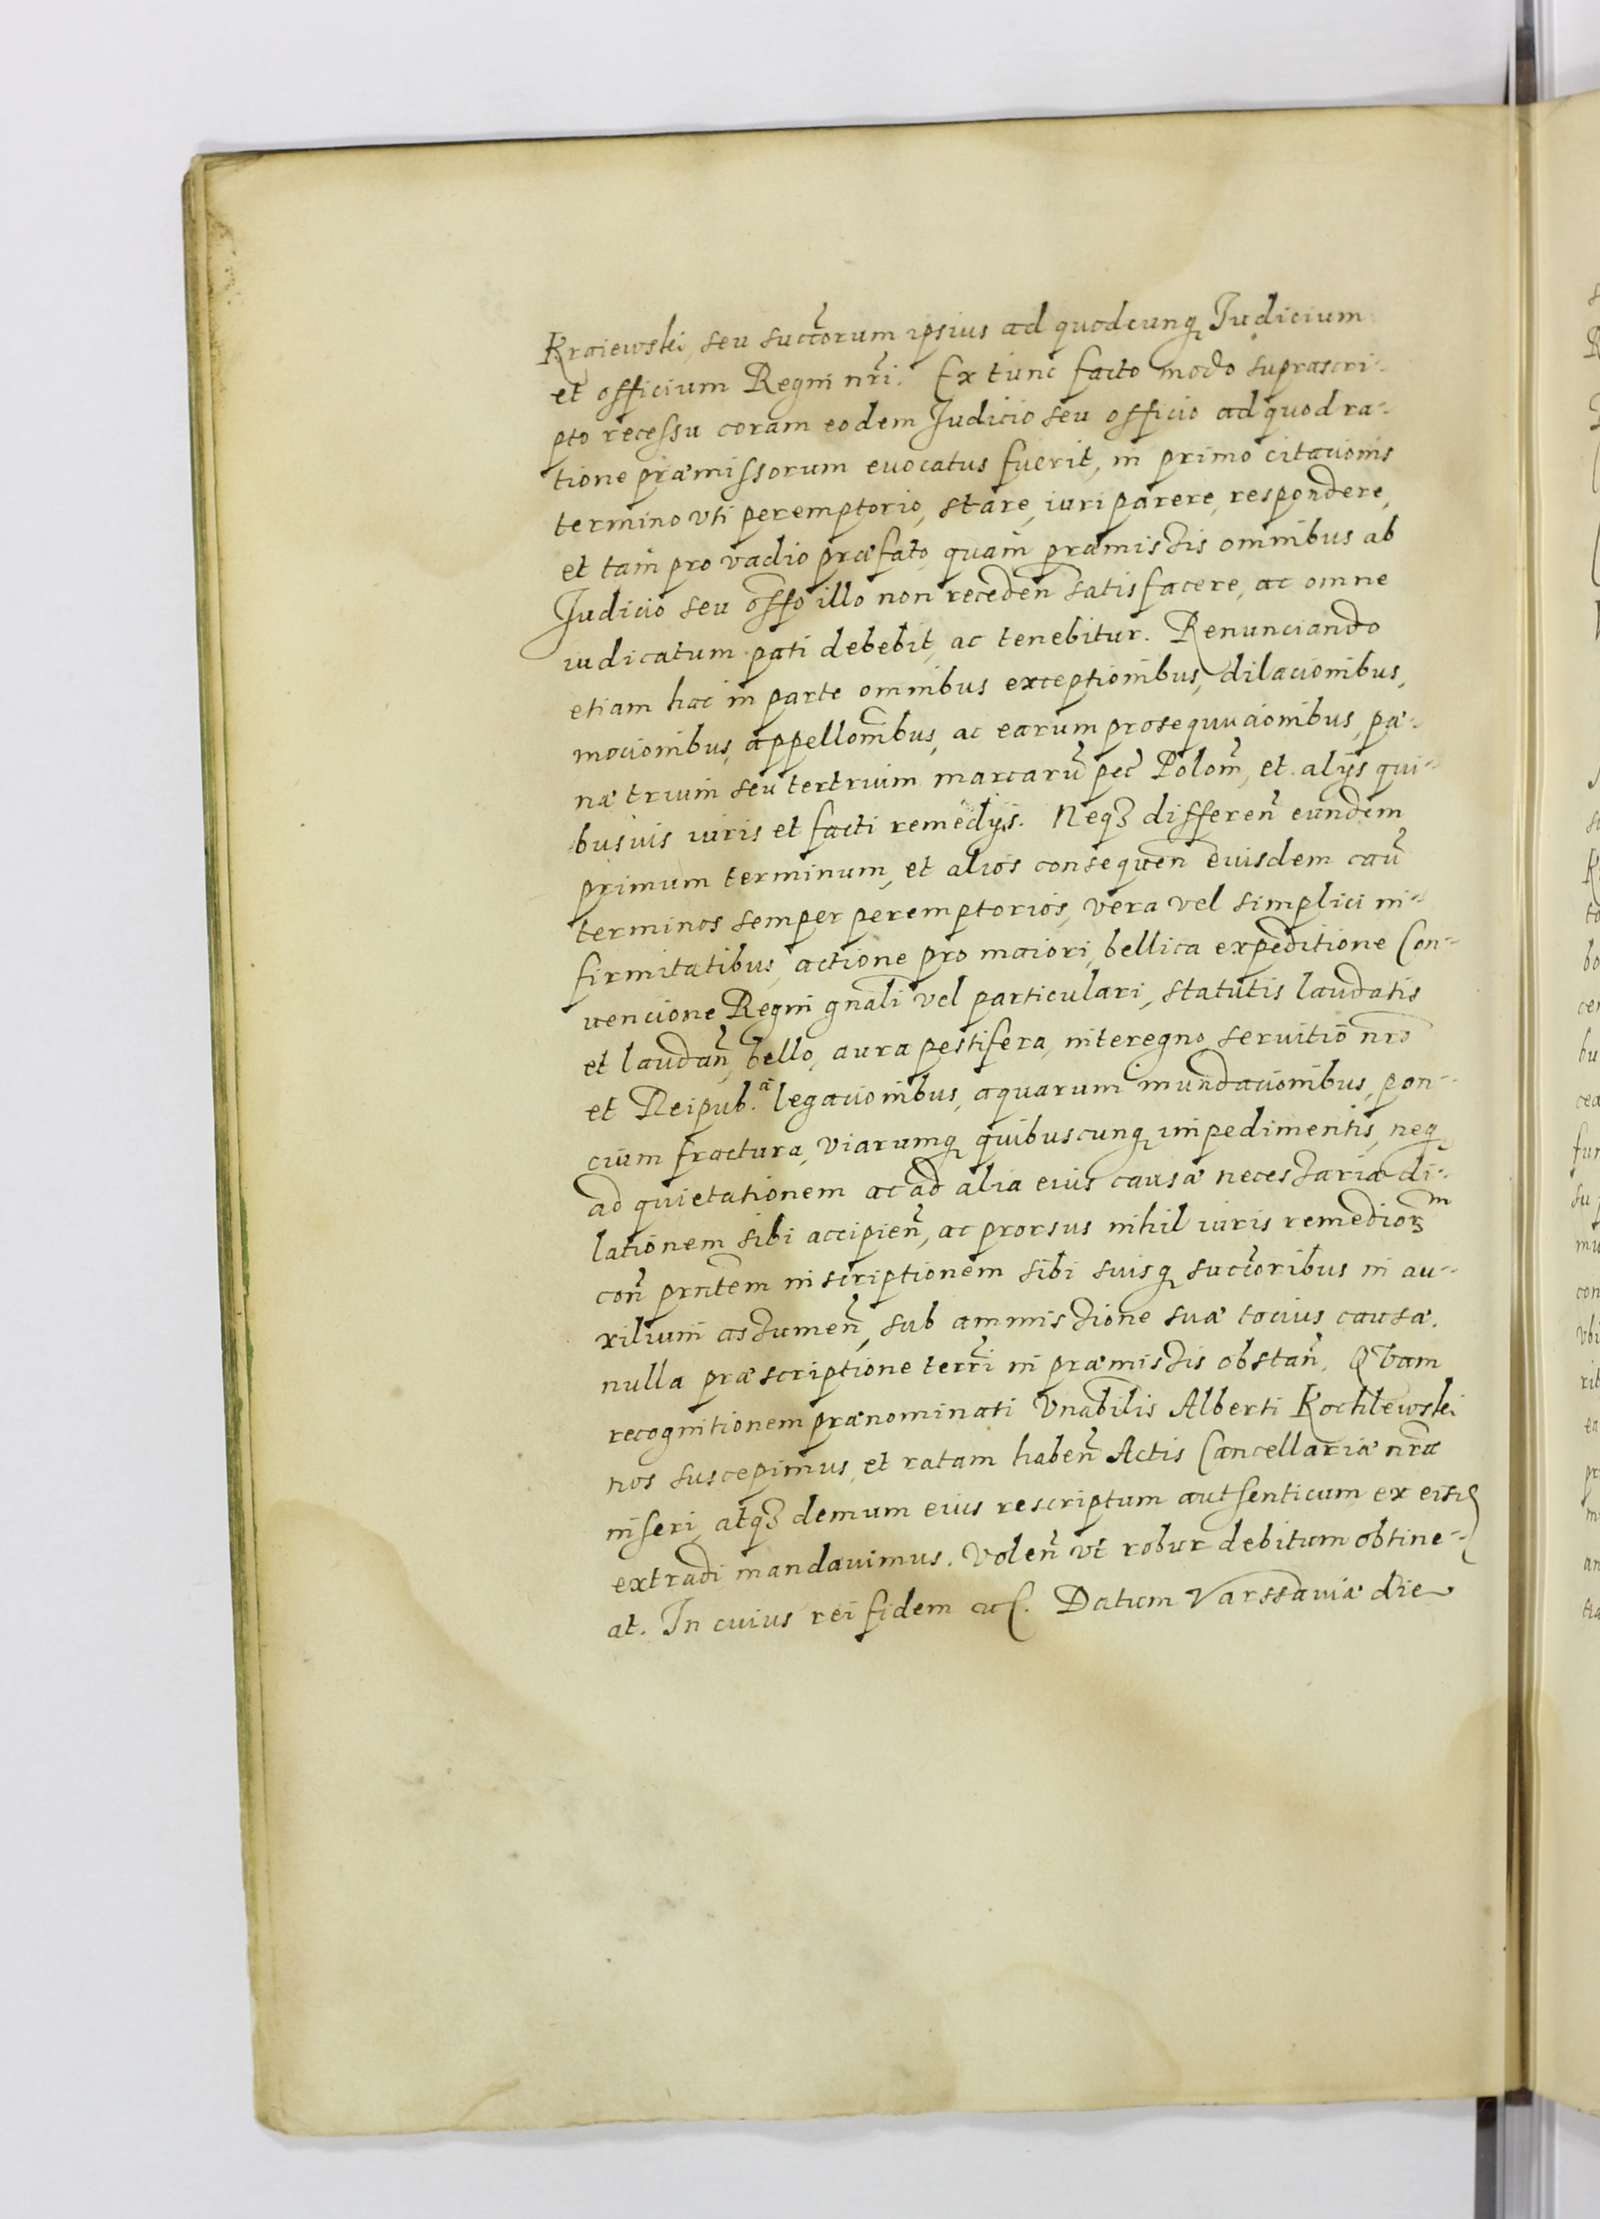 Kraiewski, seu succ̃orum ipsius ad quodcunq Iudicium
et officium Regni nr̃i. Ex tunc facto modo suprascri-
pto recessu coram eodem Iudicio seu officio ad quod ra-
tione præmissorum euocatus fuerit, in primo citacionis
termino vti peremptorio, stare, iuri parere, respondere,
et tam pro vadio præfato, quam præmissis omnibus ab
Iudicio seu offõ illo non receden̄ satisfacere, ac omne
iudicatum pati debebit, ac tenebitur. Renunciando
etiam hac in parte omnibus exceptionibus, dilacionibus,
mocionibus, appellom̃bus, ac earum prosequucionibus, pæ-
næ trium seu tertrium marcarũ pec̃ Polom̃, et alijs qui-
busuis iuris et facti remedijs. Neq3 differen̄ eundem
primum terminum, et alios consequen̄ euisdem cau̅
terminos semper peremptorios, vera vel simplici in-
firmitatibus, actione pro maiori, bellica expeditione Con-
uencione Regni gnãli vel particulari, statutis laudatis
et laudan̄, bello, aura pestifera, interegno, seruitio nrõ
et Reipub.a legacionibus, aquarum inundacionibus, pon-
cium fractura, viarumq quibuscunq impedimentis, neq
ad quietationem ac ad alia eius causæ necessaria di-
lationem sibi accipien̄, ac prorsus nihil iuris remedior3m
con̄ prñtem inscriptionem sibi suisq succ̃oribus in au-
xilium assumen̄, sub ammissione suæ tocius causæ.
nulla præscriptione terrĩ in præmissis obstan̄. Qvam
recognitionem prænominati Vnabilis Alberti Kochlewski
nos suscepimus, et ratam haben̄ Actis Cancellariæ nræ̃
inseri, atq3 demum eius rescriptum authenticum ex eisd
extradi mandauimus. Volen̄ vt robur debitum obtine-
at. In cuius rei fidem etc. Datum Varssauiæ die